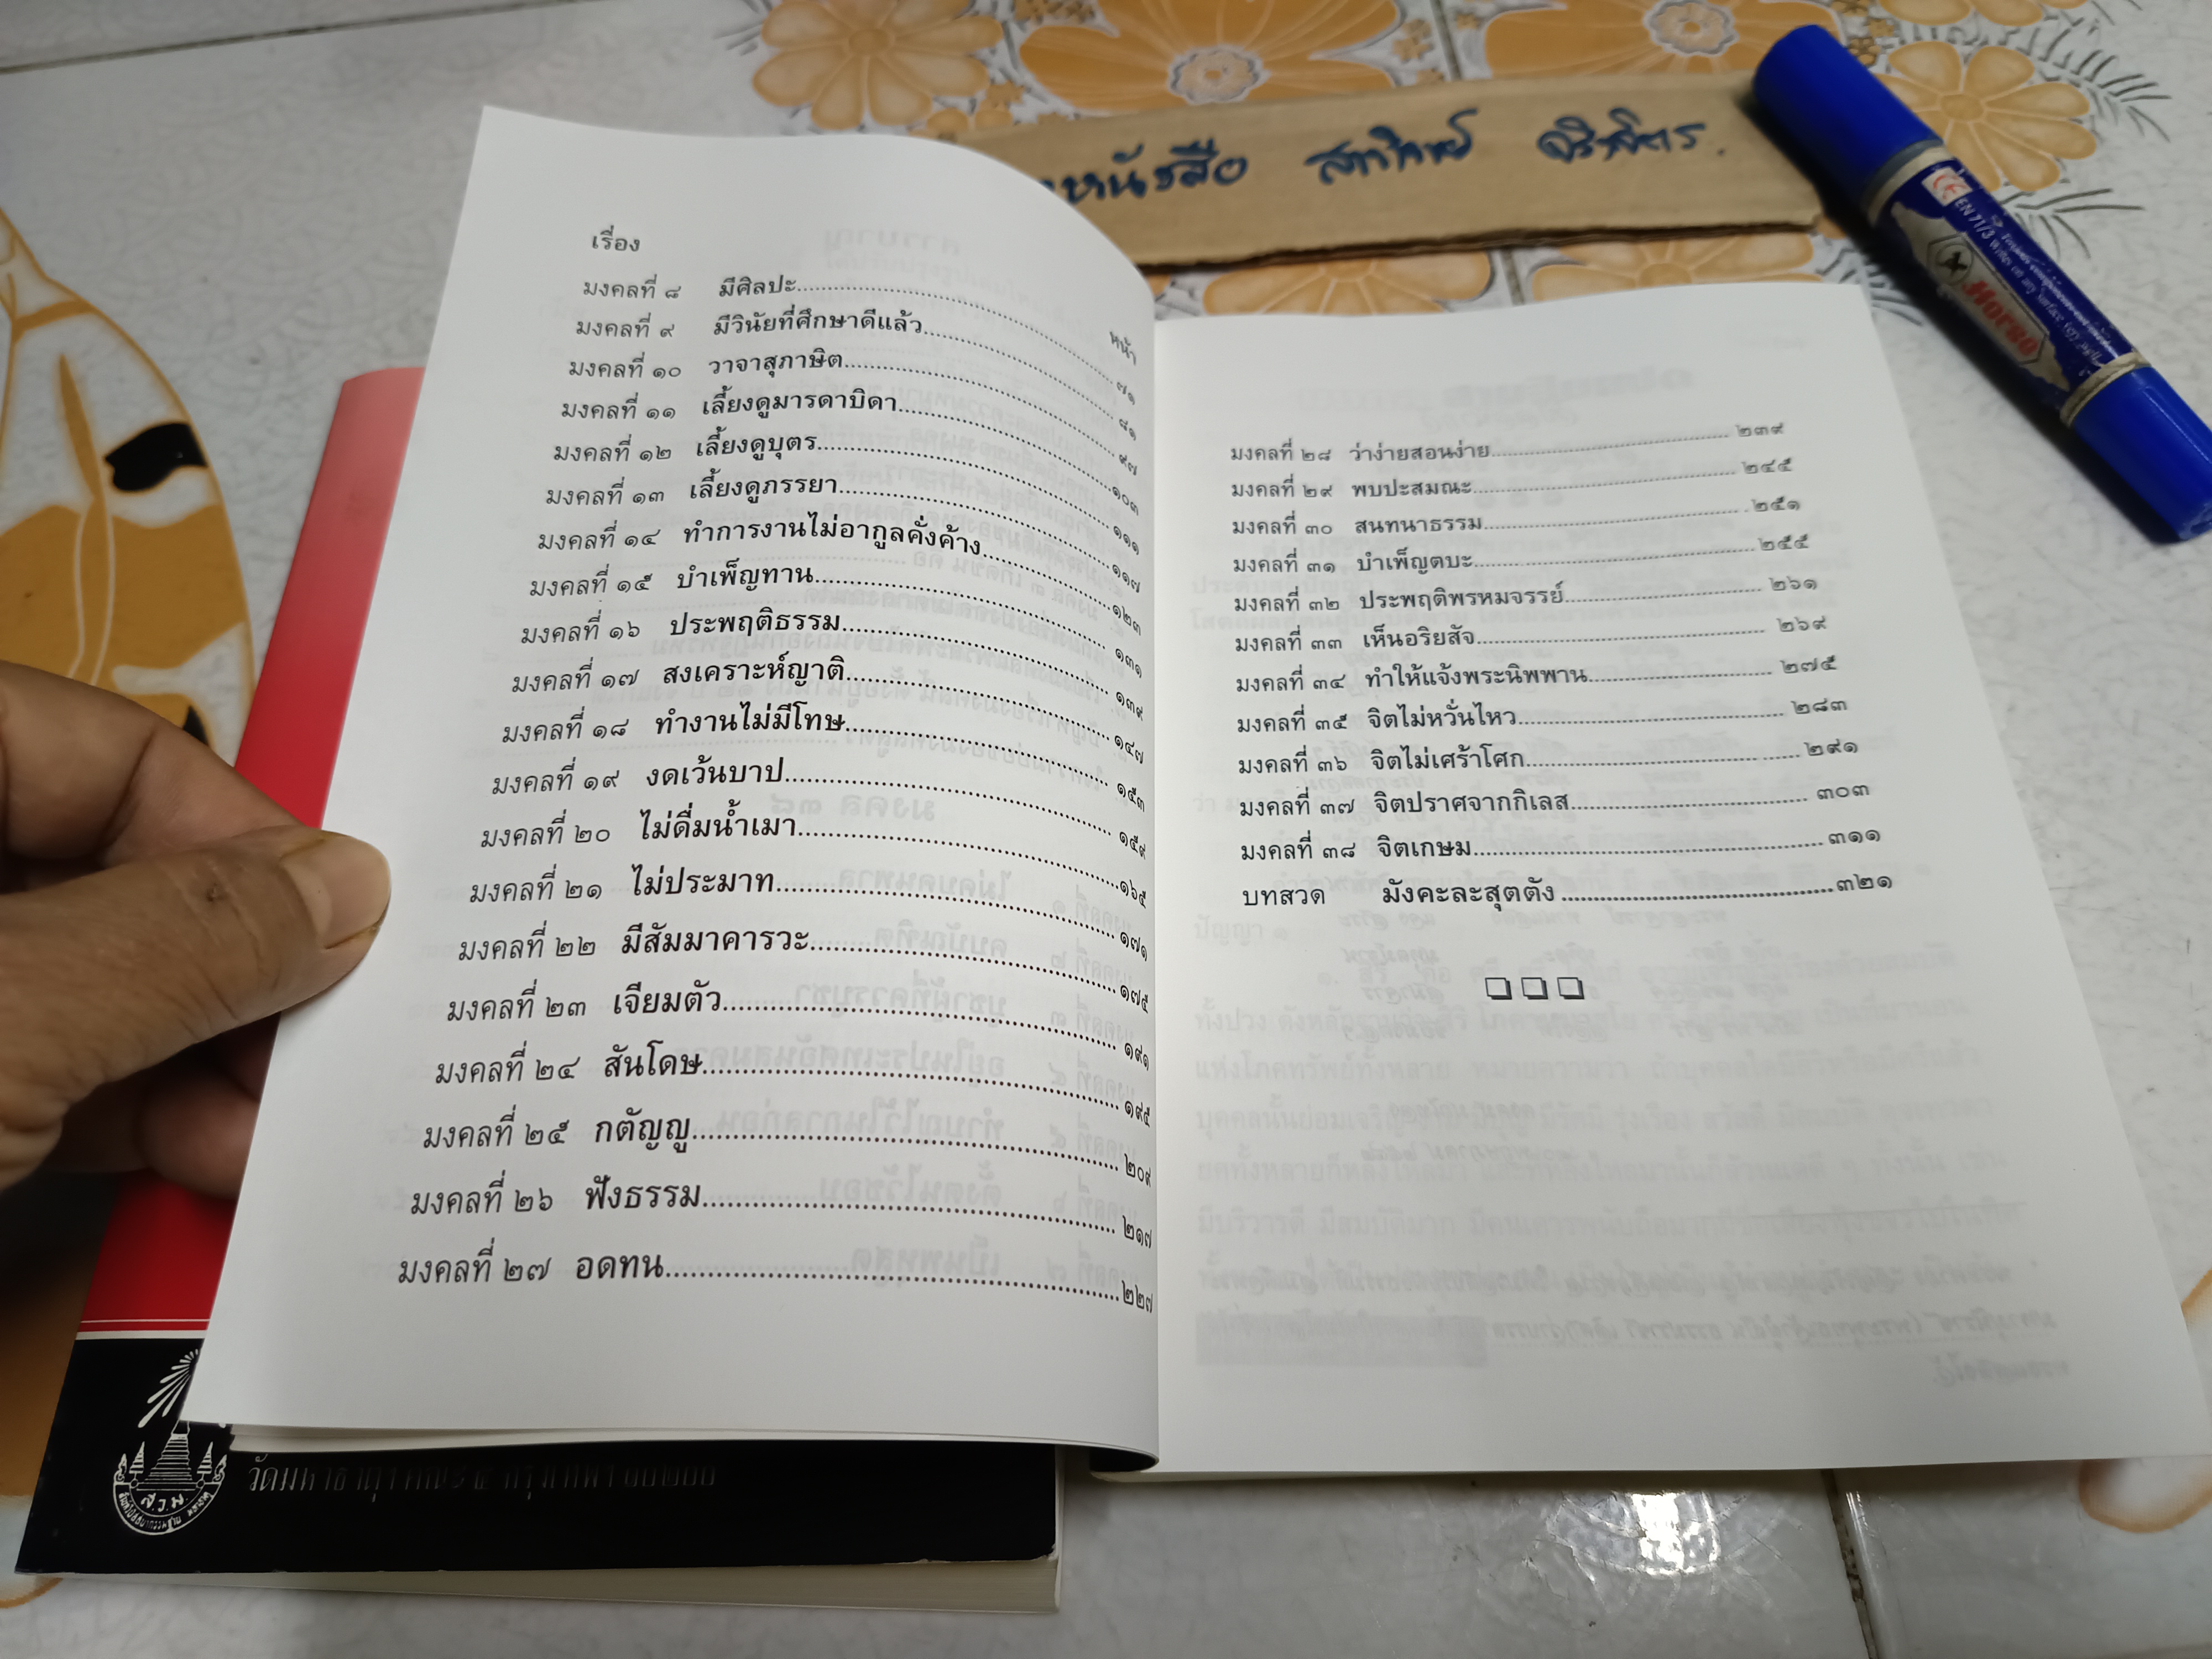 หนังสือ
เรื่อง
หน้า
มงคลที่ ๘ มีศิลปะ ๗๑
มงคลที่ ๙ มีวินัยที่ศึกษาดีแล้ว ๘๑
มงคลที่ ๑๐ วาจาสุภาษิต ๙๗
มงคลที่ ๑๑ เลี้ยงดูมารดาบิดา ๑๐๓
มงคลที่ ๑๒ เลี้ยงดูบุตร ๑๑๑
มงคลที่ ๑๓ เลี้ยงดูภรรยา ๑๑๗
มงคลที่ ๑๔ ทำการงานไม่อากูลคั่งค้าง ๑๒๓
มงคลที่ ๑๕ บำเพ็ญทาน ๑๓๑
มงคลที่ ๑๖ ประพฤติธรรม ๑๓๙
มงคลที่ ๑๗ สงเคราะห์ญาติ ๑๔๗
มงคลที่ ๑๘ ทำงานไม่มีโทษ ๑๕๓
มงคลที่ ๑๙ งดเว้นบาป ๑๕๙
มงคลที่ ๒๐ ไม่ดื่มน้ำเมา ๑๖๕
มงคลที่ ๒๑ ไม่ประมาท ๑๗๑
มงคลที่ ๒๒ มีสัมมาคารวะ ๑๗๕
มงคลที่ ๒๓ เจียมตัว ๑๙๑
มงคลที่ ๒๔ สันโดษ ๑๙๕
มงคลที่ ๒๕ กตัญญู ๒๐๙
มงคลที่ ๒๖ ฟังธรรม ๒๑๗
มงคลที่ ๒๗ อดทน ๒๒๗
มงคลที่ ๒๘ ว่าง่ายสอนง่าย ๒๓๙
มงคลที่ ๒๙ พบปะสมณะ ๒๔๕
มงคลที่ ๓๐ สนทนาธรรม ๒๕๑
มงคลที่ ๓๑ บำเพ็ญตบะ ๒๕๕
มงคลที่ ๓๒ ประพฤติพรหมจรรย์ ๒๖๑
มงคลที่ ๓๓ เห็นอริยสัจ ๒๖๙
มงคลที่ ๓๔ ทำให้แจ้งพระนิพพาน ๒๗๕
มงคลที่ ๓๕ จิตไม่หวั่นไหว ๒๘๓
มงคลที่ ๓๖ จิตไม่เศร้าโศก ๒๙๑
มงคลที่ ๓๗ จิตปราศจากกิเลส ๓๐๓
มงคลที่ ๓๘ จิตเกษม ๓๑๑
บทสวด มังคะละสุตตัง ๓๒๑
Horse
EN 71/3
ส.ว.พ.